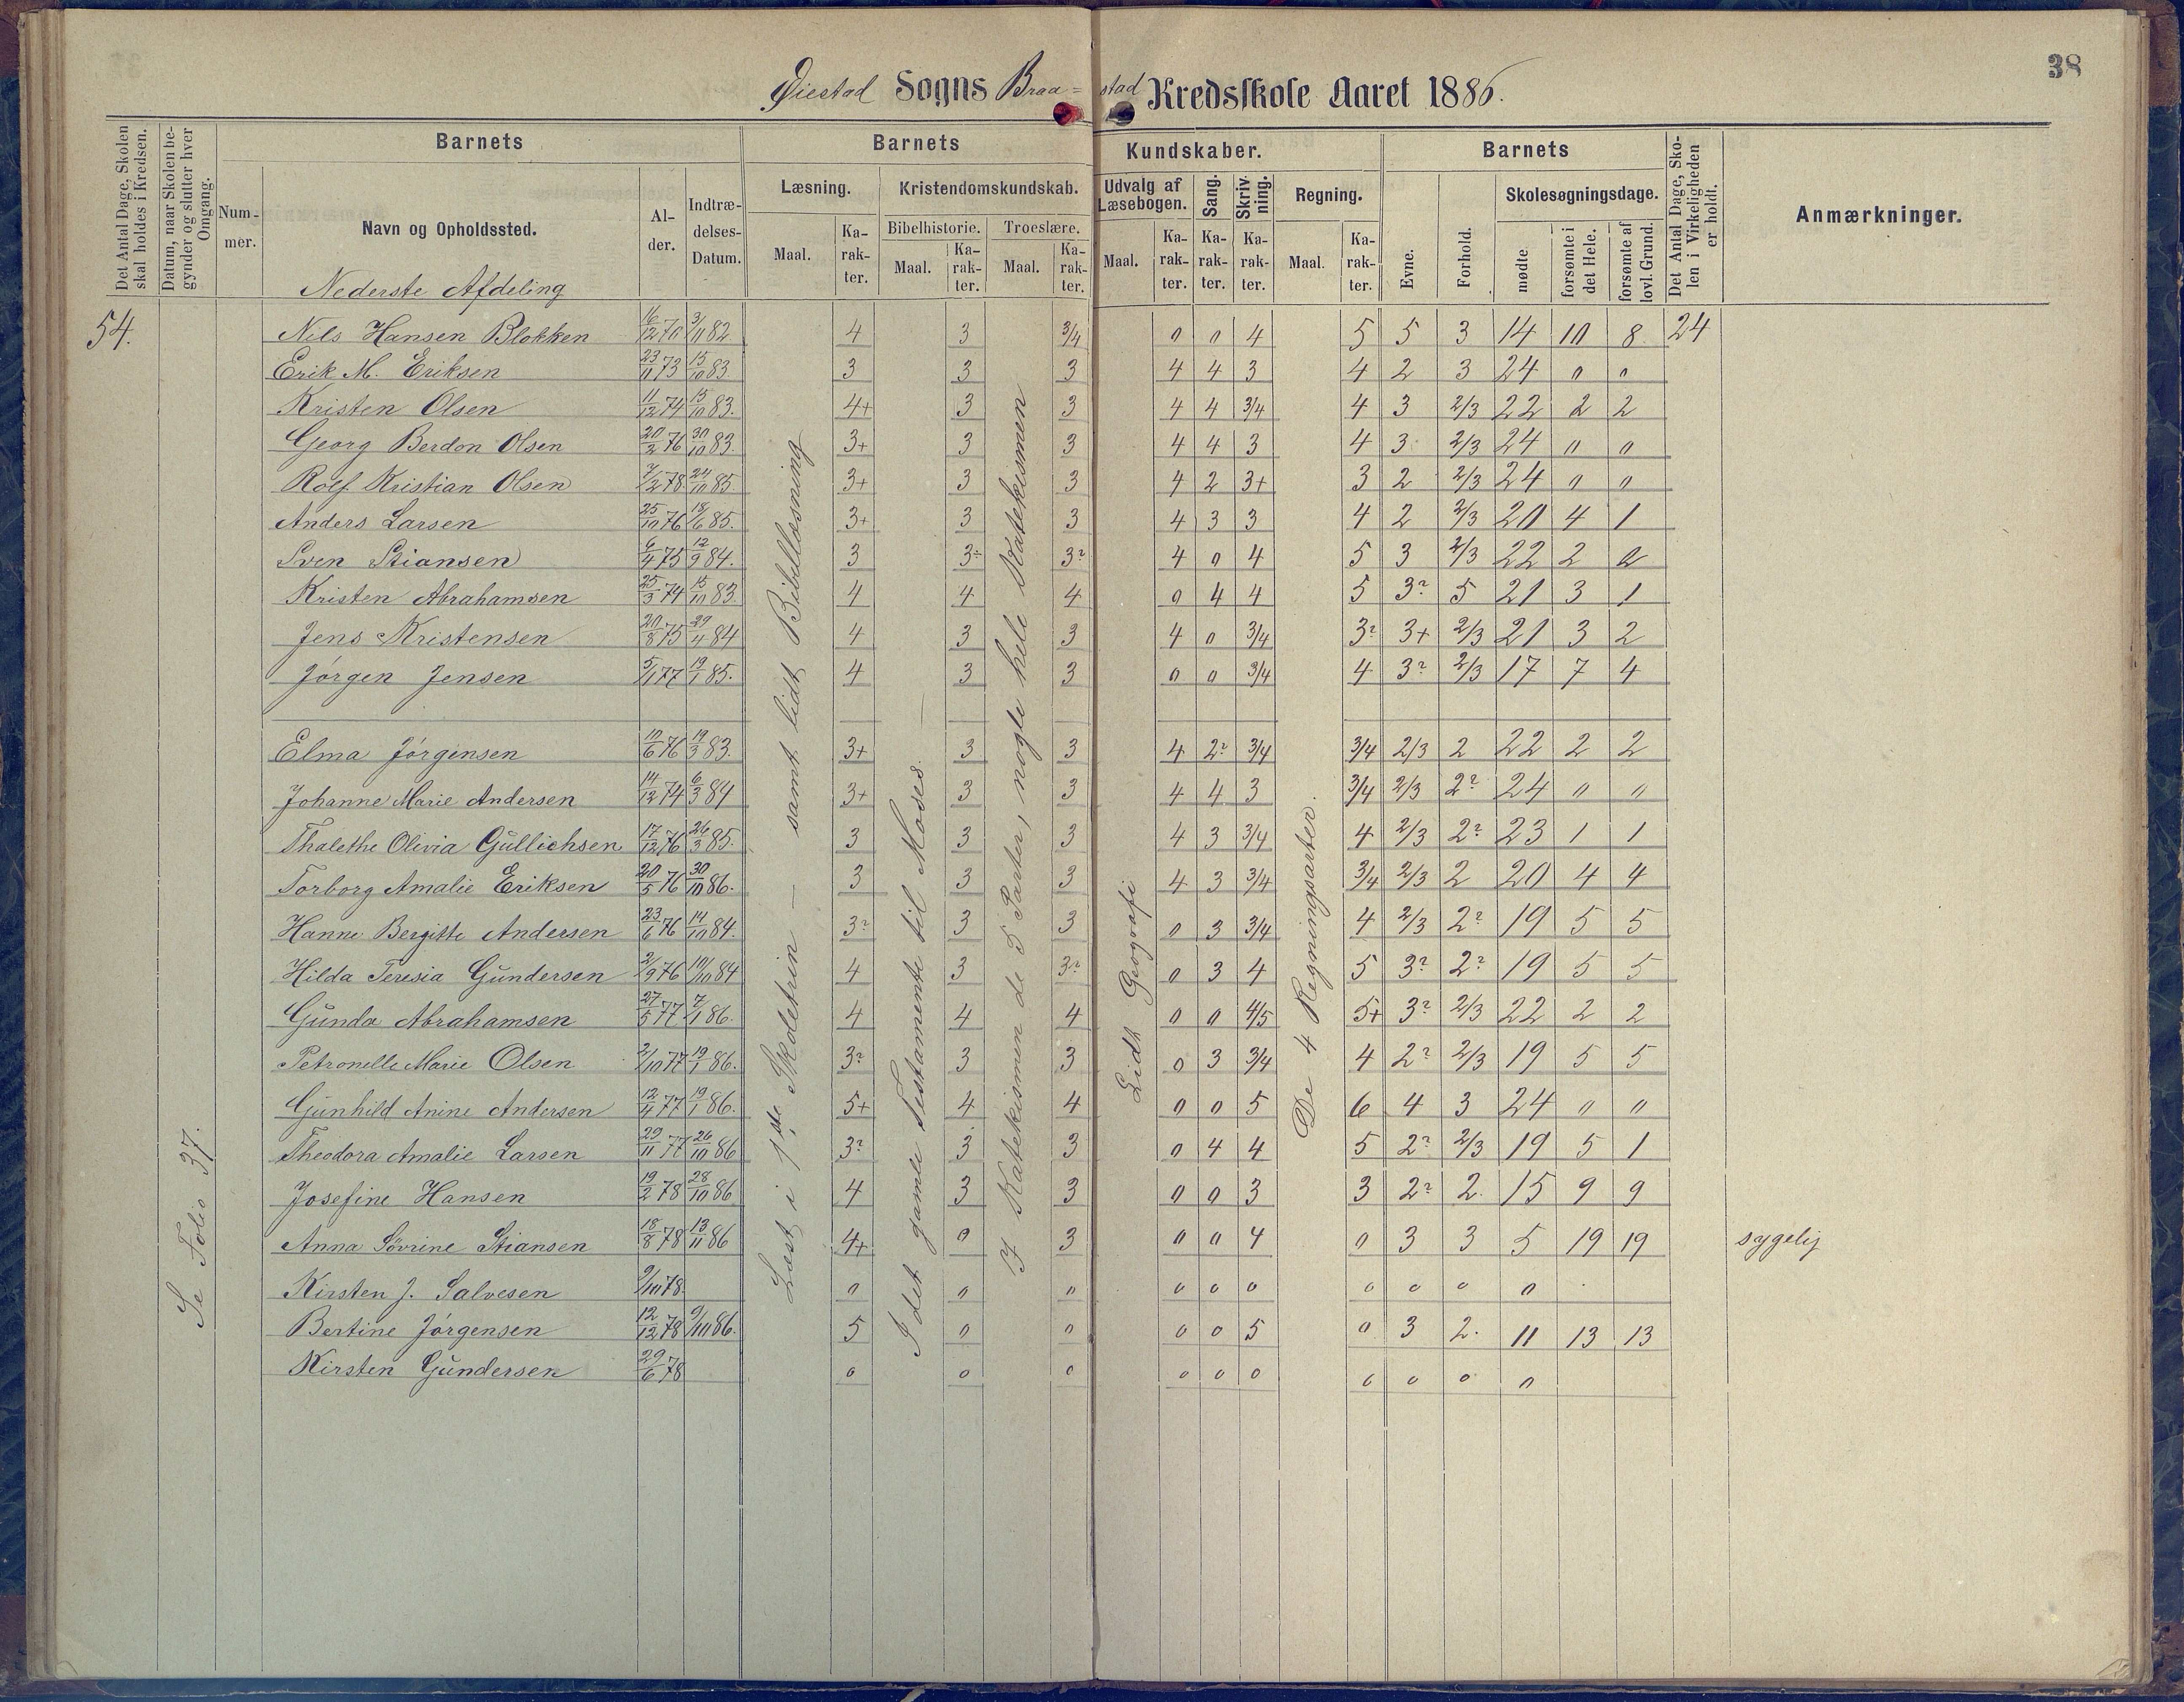 38
Øiestad Sogns Braa=stad Kredsskole Aaret 1886.
Det Antal Dage, Skolen skal holdes i Kredsen.
Datum, naar Skolen begynder og slutter hver Omgang.
Barnets
Nummer.
Navn og Opholdssted.
Alder.
Indtrædelses-Datum.
Barnets Kundskaber.
Læsning.
Maal.
Karakter.
Kristendomskundskab.
Bibelhistorie.
Maal.
Karakter.
Troeslære.
Maal.
Karakter.
Udvalg af Læsebogen.
Maal.
Karakter.
Sang.
Karakter.
Skrivning.
Karakter.
Regning.
Maal.
Karakter.
Barnets
Evne.
Forhold.
Skolesøgningsdage.
mødte
forsømte i det Hele.
forsømte af lovl. Grund.
Det Antal Dage, Skolen i Virkeligheden er holdt.
Anmærkninger.
Nederste Afdeling
54.
Se Folio 37.
Læst i 1ste Skoletrin — samt lidt Bibellæsning
I det gamle Testamente til Moses —
I Katekismen de 5 Parter, nogle hele Katekismen
Lidt Geografi
De 4 Regningsarter.
Nils Hansen Blokken 16/12 70 3/11 82 4 3 3/4 0 0 4 5 5 3 14 10 8 24
Erik M. Eriksen 23/11 73 15/10 83 3 3 3 4 4 3 4 2 3 24 0 0
Kristen Olsen 11/12 74 15/10 83. 4+ 3 3 4 4 3/4 4 3 2/3 22 2 2
Georg Berdon Olsen 20/2 76 30/10 83. 3+ 3 3 4 4 3 4 3 2/3 24 0 0
Rolf Kristian Olsen 7/2 78 24/10 85. 3+ 3 3 4 2 3+ 3 2 2/3 24 0 0
Anders Larsen 25/10 76 18/6 85. 3+ 3 3 4 3 3 4 2 2/3 20 4 1
Sven Stiansen 6/4 75 12/9 84. 3 3÷ 3? 4 0 4 5 3 2/3 22 2 2
Kristen Abrahamsen 25/3 74 15/10 83. 4 4 4 0 4 4 5 3? 5 21 3 1
Jens Kristensen 20/8 75 29/4 84 4 3 3 4 0 3/4 3? 3+ 2/3 21 3 2
Jørgen Jensen 5/1 77 19/1 85. 4 3 3 0 0 3/4 4 3? 2/3 17 7 4
Elma Jørgensen 10/6 76 19/3 83. 3+ 3 3 4 2? 3/4 3/4 2/3 2 22 2 2
Johanne Marie Andersen 14/12 74 6/3 84 3+ 3 3 4 4 3 3/4 2/3 2? 24 0 0
Thalethe Olivia Gullichsen 17/12 76 26/3 85. 3 3 3 4 3 3/4 4 2/3 2? 23 1 1
Torborg Amalie Eriksen 20/5 76 30/10 86. 3 3 3 4 3 3/4 3/4 2/3 2 20 4 4
Hanne Bergitte Andersen 23/6 76 14/10 84. 3? 3 3 0 3 3/4 4 2/3 2? 19 5 5
Hilda Teresia Gundersen 2/9 76 10/10 84 4 3 3? 0 3 4 5 3? 2? 19 5 5
Gunda Abrahamsen 27/5 77 7/1 86. 4 4 4 0 0 4/5 5+ 3? 2/3 22 2 2
Petronelle Marie Olsen 2/10 77 19/1 86. 3? 3 3 0 3 3/4 4 2? 2/3 19 5 5
Gunhild Anine Andersen 12/4 77 19/1 86. 5+ 4 4 0 0 5 6 4 3 24 0 0
Theodora Amalie Larsen 29/11 77 26/10 86 3? 3 3 0 4 4 5 2? 2/3 19 5 1
Josefine Hansen 19/2 78 28/10 86 4 3 3 0 0 3 3 2? 2. 15 9 9
Anna Sövrine Stiansen 18/8 78 13/11 86 4+ 0 3 0 0 4 0 3 3 5 19 19 sygelig
Kirsten J. Salvesen 9/10 78. 0 0 0 0 0 0 0 0 0 0
Bertine Jørgensen 12/12 78 9/10 86. 5 0 0 0 0 5 0 3 2. 11 13 13
Kirsten Gundersen 29/6 78 0 0 0 0 0 0 0 0 0 0